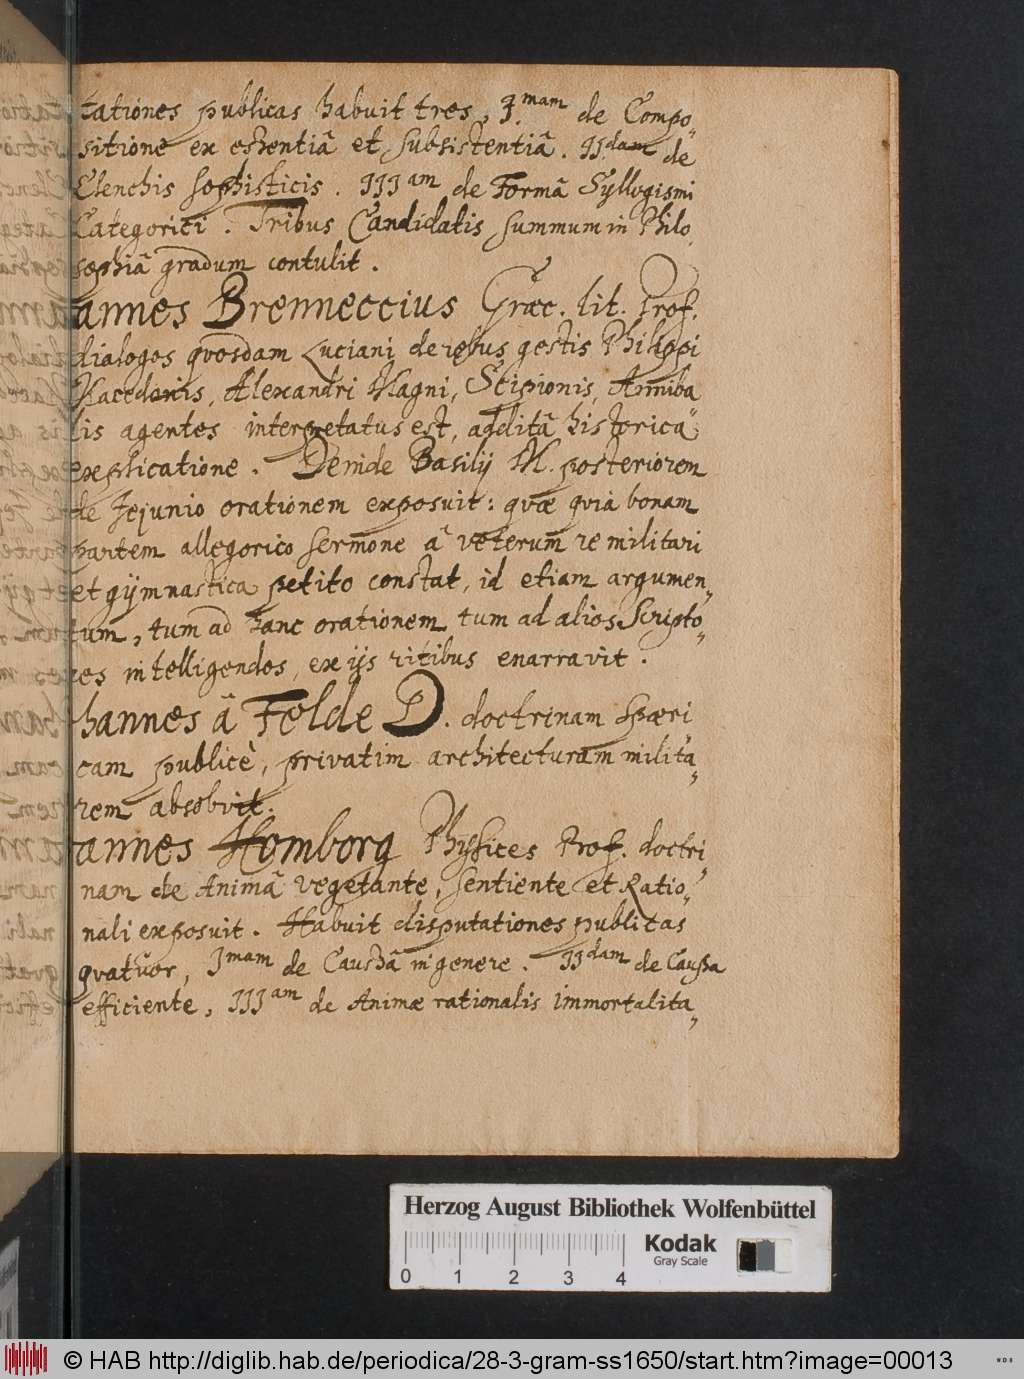 tationes publicas habuit tres, I.mam de Compo„
sitione ex essentiâ et subsistentiâ. II.dam de
Elenchis sophisticis. IIIam de Formâ Syllogismi
Categorici. Tribus Candidatis summum in Philo„
sophiâ gradum contulit.
annes Brenneccius Græc. lit. Prof.
dialogos qvosdam Luciani de rebus gestis Philippi
Macedonis, Alexandri Magni, Scipionis, Anniba
lis agentes interpretatus est, additâ historicâ
explicatione. Deinde Basilij M. posteriorem
de Jejunio orationem exposuit: qvæ qvia bonam
partem allegorico sermone â veterum re militari
et gijmnastica petito constat, id etiam argumen„
tum, tum ad hanc orationem tum ad alios Scripto„
res intelligendos, ex ijs ritibus enarravit.
hannes â Felde D. doctrinam spæri
cam publicè, privatim architecturam milita„
rem absolvit.
annes Homborg Physices Prof. doctri„
nam de Animâ vegetante, sentiente et Ratio„
nali exposuit. Habuit disputationes publicas
qvatuor, Imam de Caussâ in genere. IIdam de Caussa
efficiente, IIIam de Animæ rationalis immortalita„
Herzog August Bibliothek Wolfenbüttel
0 1 2 3 4
Kodak
Gray Scale
© HAB http://diglib.hab.de/periodica/28-3-gram-ss1650/start.htm?image=00013